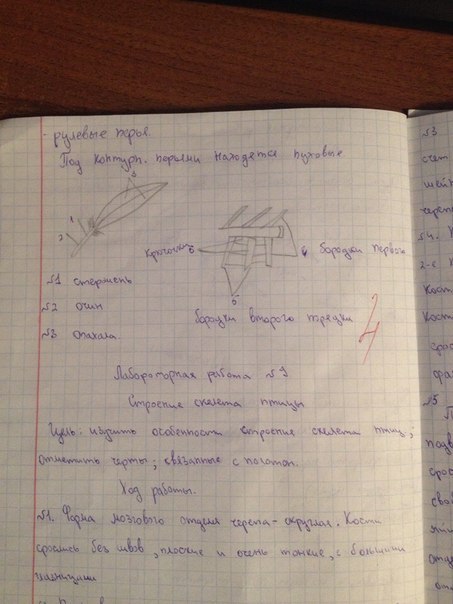 - рулевые перья.
Под контурн. перьями находятся пуховые
3
1
2
крючочки 6
4 бородки первого
5
№1 стержень
№2 очин
бородки второго порядка
№3 опахала.
4
Лабораторная работа №9
Строение скелета птицы
Цель: изучить особенности строение скелета птиц,
отметить черты; связанные с полётом.
Ход работы.
№1. Форма мозгового отдела черепа - округлая. Кости
срослись без швов, плоские и очень тонкие, с большими
глазницами
№3
счет
шей
череп
№4.
2-е
Кост
Кост
срос
№5
подв
срос
сво
отде